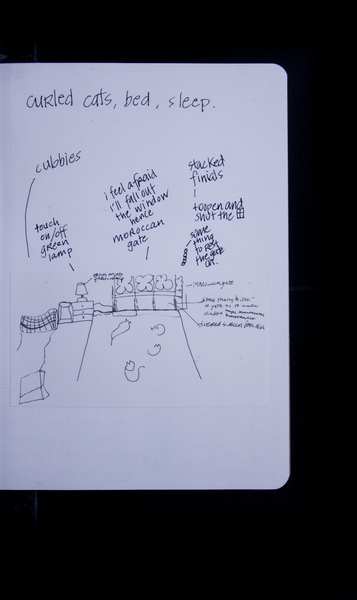 curled cats, bed, sleep.
cubbies
touch
on/off
green
lamp
i feel afraid
i'll fall out
the window
hence
moroccan
gate
stacked
finials
to open and
shut the
some
thing
to rest
the gate
on.